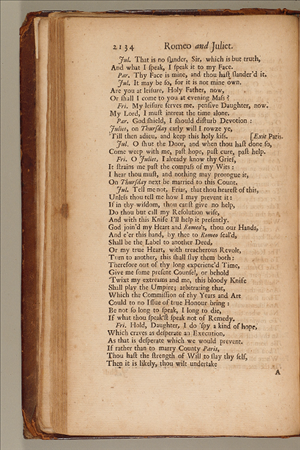 2134 Romeo and Juliet.
Jul. That is no slander, Sir, which is but truth,
And what I speak, I speak it to my Face.
Par. Thy Face is mine, and thou hast slander'd it.
Jul. It may be so, for it is not mine own.
Are you at leisure, Holy Father, now,
Or shall I come to you at evening Mass?
Fri. My leisure serves me, pensive Daughter, now.
My Lord, I must intreat the time alone.
Par. God shield, I should disturb Devotion:
Juliet, on Thursday early will I rowze ye,
Till then adieu, and keep this holy kiss. [Exit Paris.
Jul. O shut the Door, and when thou hast done so,
Come weep with me, past hope, past cure, past help.
Fri. O Juliet, I already know thy Grief,
It strains me past the compass of my Wits:
I hear thou must, and nothing may prorogue it,
On Thursday next be married to this Count.
Jul. Tell me not, Friar, that thou hearest of this,
Unless thou tell me how I may prevent it:
If in thy wisdom, thou canst give no help,
Do thou but call my Resolution wise,
And with this Knife I'll help it presently.
God join'd my Heart and Romeo's, thou our Hands,
And e'er this hand, by thee to Romeo seal'd,
Shall be the Label to another Deed,
Or my true Heart, with treacherous Revolt,
Turn to another, this shall slay them both:
Therefore out of thy long experienc'd Time,
Give me some present Counsel, or behold
'Twixt my extreams and me, this bloody Knife
Shall play the Umpire; arbitrating that,
Which the Commission of thy Years and Art
Could to no Issue of true Honour bring:
Be not so long to speak, I long to die,
If what thou speak'st speak not of Remedy.
Fri. Hold, Daughter, I do 'spy a kind of hope,
Which craves as desperate an Execution,
As that is desperate which we would prevent.
If rather than to marry County Paris,
Thou hast the strength of Will to slay thy self,
Then it is likely, thou wilt undertake
A